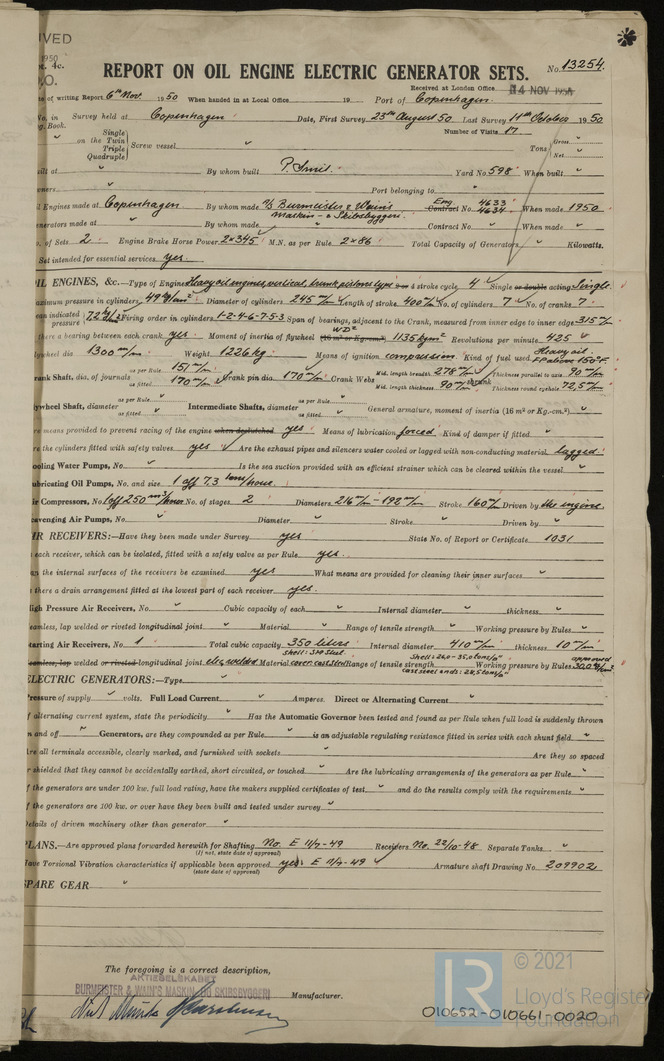 IVED
1950
4c.
REPORT ON OIL ENGINE ELECTRIC GENERATOR SETS. No. 13254.
Received at London Office 14 NOV 1950
of writing Report 6th Nov. 1950 When handed in at Local Office 19 Port of Copenhagen.
No. in Survey held at Copenhagen Date, First Survey 23rd August 50 Last Survey 14th October 1950
Book. Number of Visits 17
on the Single Twin Triple Quadruple Screw vessel Tons Gross Net
uilt at " By whom built P. Smit. Yard No. 598 When built "
wners " Port belonging to
l Engines made at Copenhagen By whom made A/S Burmeister & Wain's Maskin- & Skibsbyggeri Eng. Contract No. 4633 4634 When made 1950
nerators made at " By whom made " Contract No. " When made "
. of Sets 2 Engine Brake Horse Power 2×345 M.N. as per Rule 2×86 Total Capacity of Generators " Kilowatts.
Set intended for essential services yes
OIL ENGINES, &c.—Type of Engines Heavy oil engines, vertical, trunk pistons type 2 or 4 stroke cycle 4 Single or double acting Single.
aximum pressure in cylinders 49 kg/cm² Diameter of cylinders 245 m/m Length of stroke 400 m/m No. of cylinders 7 No. of cranks 7
ean indicated pressure 7,2 kg/cm² Firing order in cylinders 1-2-4-6-7-5-3 Span of bearings, adjacent to the Crank, measured from inner edge to inner edge 315 m/m
there a bearing between each crank yes. Moment of inertia of flywheel WD² (16 m² or Kg.-cm.²) 1135 kgm² Revolutions per minute 425
lywheel dia 1300 m/m Weight 1226 kg. Means of ignition compression. Kind of fuel used Heavy oil. F.P. above 150°F.
rank Shaft, dia. of journals as per Rule 151 m/m as fitted 170 m/m Crank pin dia 170 m/m Crank Webs Mid. length breadth 278 m/m Mid. length thickness 90 m/m shrunk Thickness parallel to axis 90 m/m Thickness round eyehole 72,5 m/m
lywheel Shaft, diameter as per Rule as fitted Intermediate Shafts, diameter as per Rule as fitted General armature, moment of inertia (16 m² or Kg.-cm.²)
re means provided to prevent racing of the engine when declutched yes Means of lubrication forced Kind of damper if fitted "
re the cylinders fitted with safety valves yes Are the exhaust pipes and silencers water cooled or lagged with non-conducting material lagged.
ooling Water Pumps, No. " Is the sea suction provided with an efficient strainer which can be cleared within the vessel "
ubricating Oil Pumps, No. and size 1 off 7.3 tons/hour.
ir Compressors, No. 1 off 250 m³/hour No. of stages 2 Diameters 216 m/m - 192 m/m Stroke 160 m/m Driven by the engine.
cavenging Air Pumps, No. " Diameter " Stroke " Driven by "
IR RECEIVERS:—Have they been made under Survey yes State No. of Report or Certificate 1031
s each receiver, which can be isolated, fitted with a safety valve as per Rule yes.
an the internal surfaces of the receivers be examined yes What means are provided for cleaning their inner surfaces "
s there a drain arrangement fitted at the lowest part of each receiver yes.
igh Pressure Air Receivers, No. " Cubic capacity of each " Internal diameter " thickness "
eamless, lap welded or riveted longitudinal joint " Material " Range of tensile strength " Working pressure by Rules "
tarting Air Receivers, No. 1 Total cubic capacity 350 liters Internal diameter 410 m/m thickness 10 m/m
eamless, lap welded or riveted longitudinal joint elec. welded Material Range of tensile strength Working pressure by Rules approved
ELECTRIC GENERATORS:—Type "
ressure of supply " volts. Full Load Current " Amperes. Direct or Alternating Current "
f alternating current system, state the periodicity " Has the Automatic Governor been tested and found as per Rule when full load is suddenly thrown
n and off " Generators, are they compounded as per Rule " is an adjustable regulating resistance fitted in series with each shunt field "
re all terminals accessible, clearly marked, and furnished with sockets " Are they so spaced
r shielded that they cannot be accidentally earthed, short circuited, or touched " Are the lubricating arrangements of the generators as per Rule "
f the generators are under 100 kw. full load rating, have the makers supplied certificates of test " and do the results comply with the requirements "
f the generators are 100 kw. or over have they been built and tested under survey "
etails of driven machinery other than generator "
PLANS.—Are approved plans forwarded herewith for Shafting No. E 11/7-49 Receivers No. 22/10-48 Separate Tanks "
(If not, state date of approval)
ave Torsional Vibration characteristics if applicable been approved yes: E 11/7-49 Armature shaft Drawing No. 209902
(state date of approval)
SPARE GEAR "
The foregoing is a correct description,
AKTIESELSKABET
BURMEISTER & WAIN'S MASKIN- OG SKIBSBYGGERI Manufacturer.
LR © 2021
Lloyd's Register
Foundation
010652-010661-0020